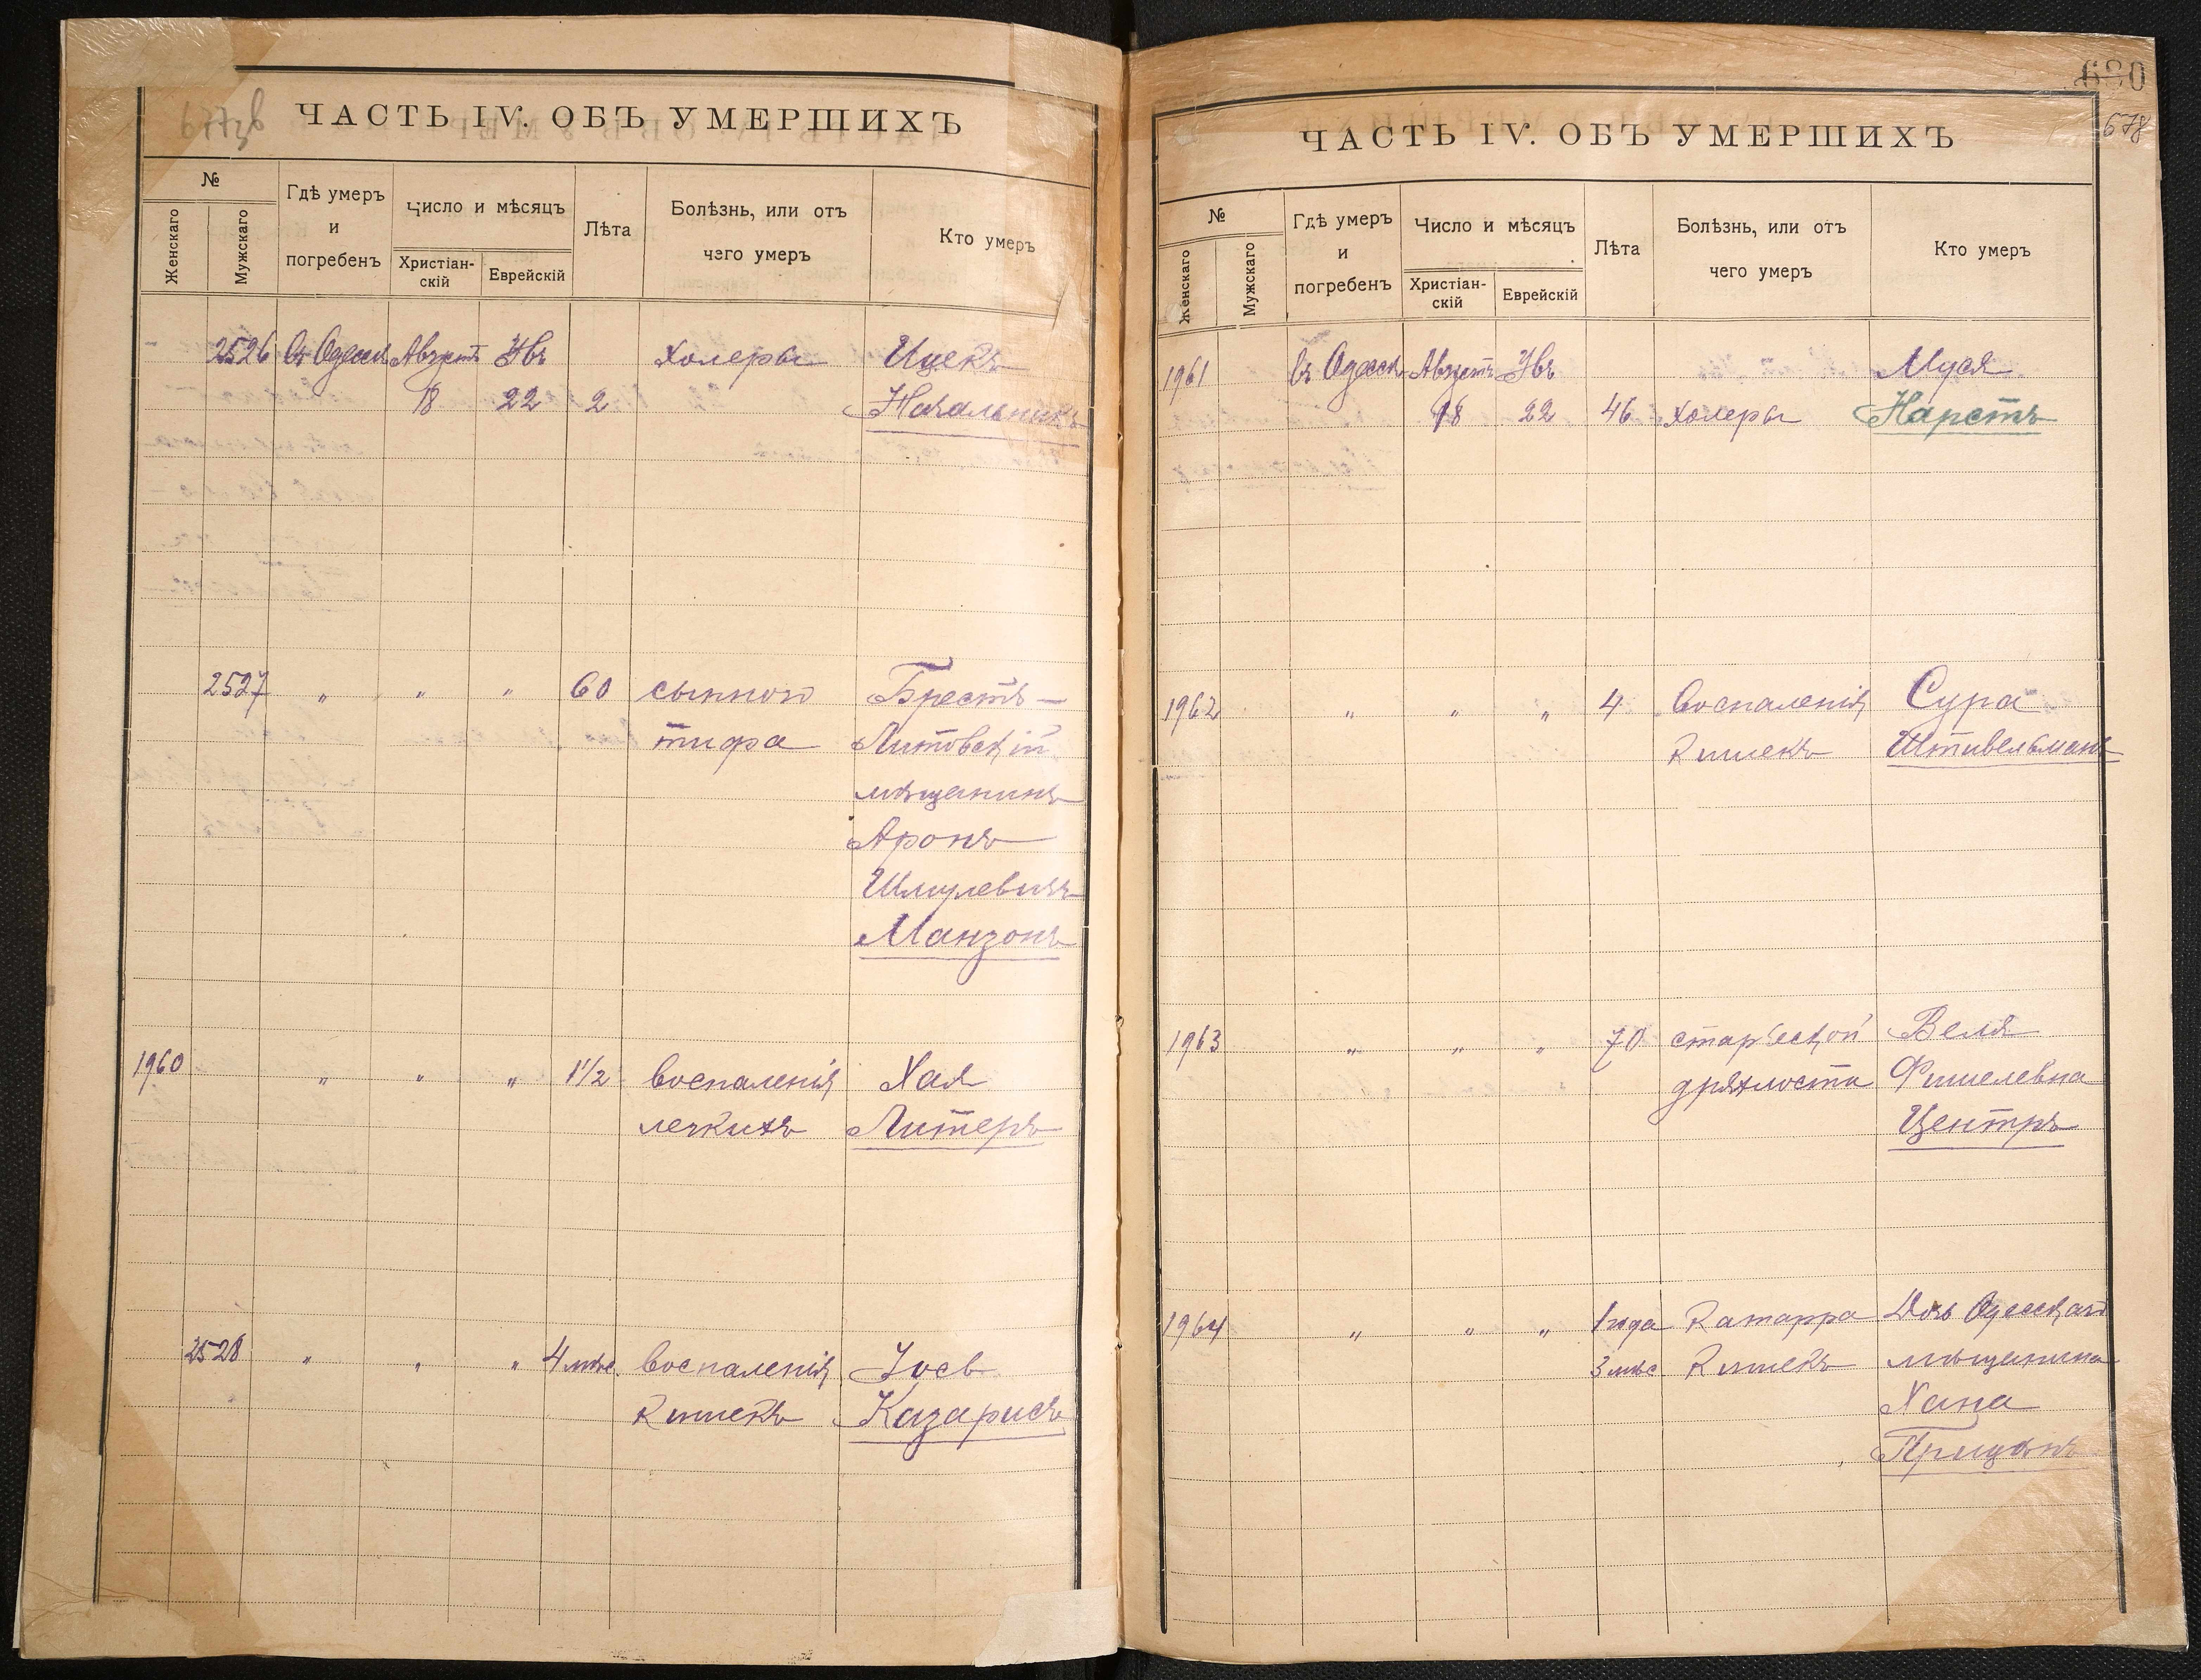 677зв
ЧАСТЬ IV. ОБЪ УМЕРШИХЪ
№
Женскаго
Мужскаго
Гдѣ умеръ
и
погребенъ
Число и мѣсяцъ
Христіан-
скій
Еврейскій
Лѣта
Болѣзнь, или отъ
чего умеръ
Кто умеръ
2526 въ Одессѣ Августъ Увъ холеры Ицекъ
18 22 2 Начальникъ
2527 " " " 60 сыпного Брестъ-
тифа Литовскій
мѣщанинъ
Аронъ
Шмулевичъ
Манзонъ
1960 " " " 1½ воспаленія Хая
легкихъ Литеръ
2528 " " " 4 мѣс. воспаленія Іосъ
кишекъ Казарисъ
680
678
ЧАСТЬ IV. ОБЪ УМЕРШИХЪ
№
Женскаго
Мужскаго
Гдѣ умеръ
и
погребенъ
Число и мѣсяцъ
Христіан-
скій
Еврейскій
Лѣта
Болѣзнь, или отъ
чего умеръ
Кто умеръ
1961 въ Одессѣ Августъ Увъ Муся
18 22 46 холеры Нарстъ
1962 " " " 4 воспаленія Сура
кишекъ Штивельманъ
1963 " " " 70 старческой Веля
дряхлости Фишелевна
Центръ
1964 " " " 1 года катарра Дочь Одесскаго
3 мѣс кишекъ мѣщанина
Хана
Прицанъ